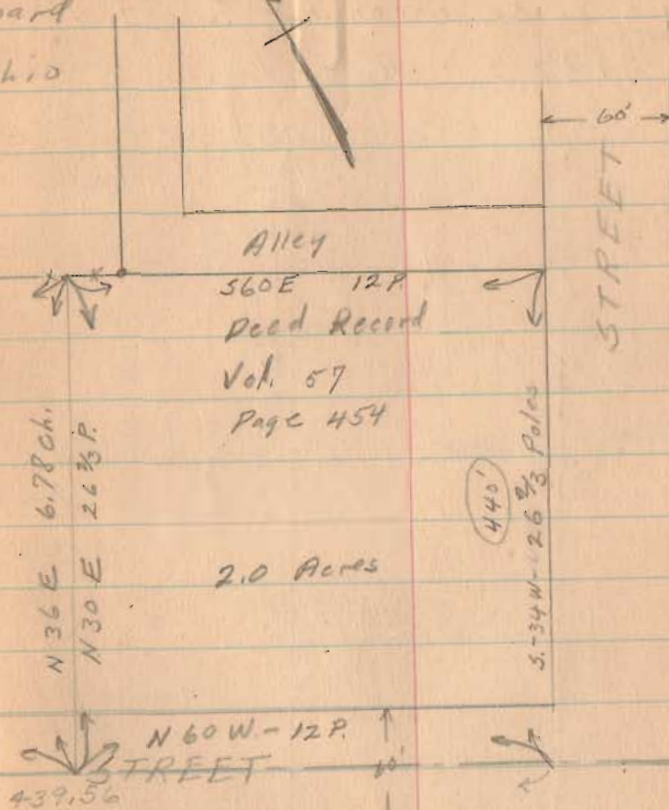 hio
60'
STREET
Alley
S60E 12P.
Deed Record
Vol. 57
Page 454
N 36 E 6.78 ch.
N 30 E 26 2/3 P.
440'
S.-34W- 26 2/3 Poles
2.0 Acres
N 60 W - 12 P.
STREET
60'
439.56